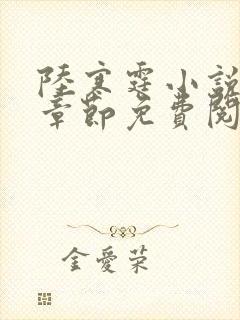 陸寒霆小說
章節免費閱
金愛荣